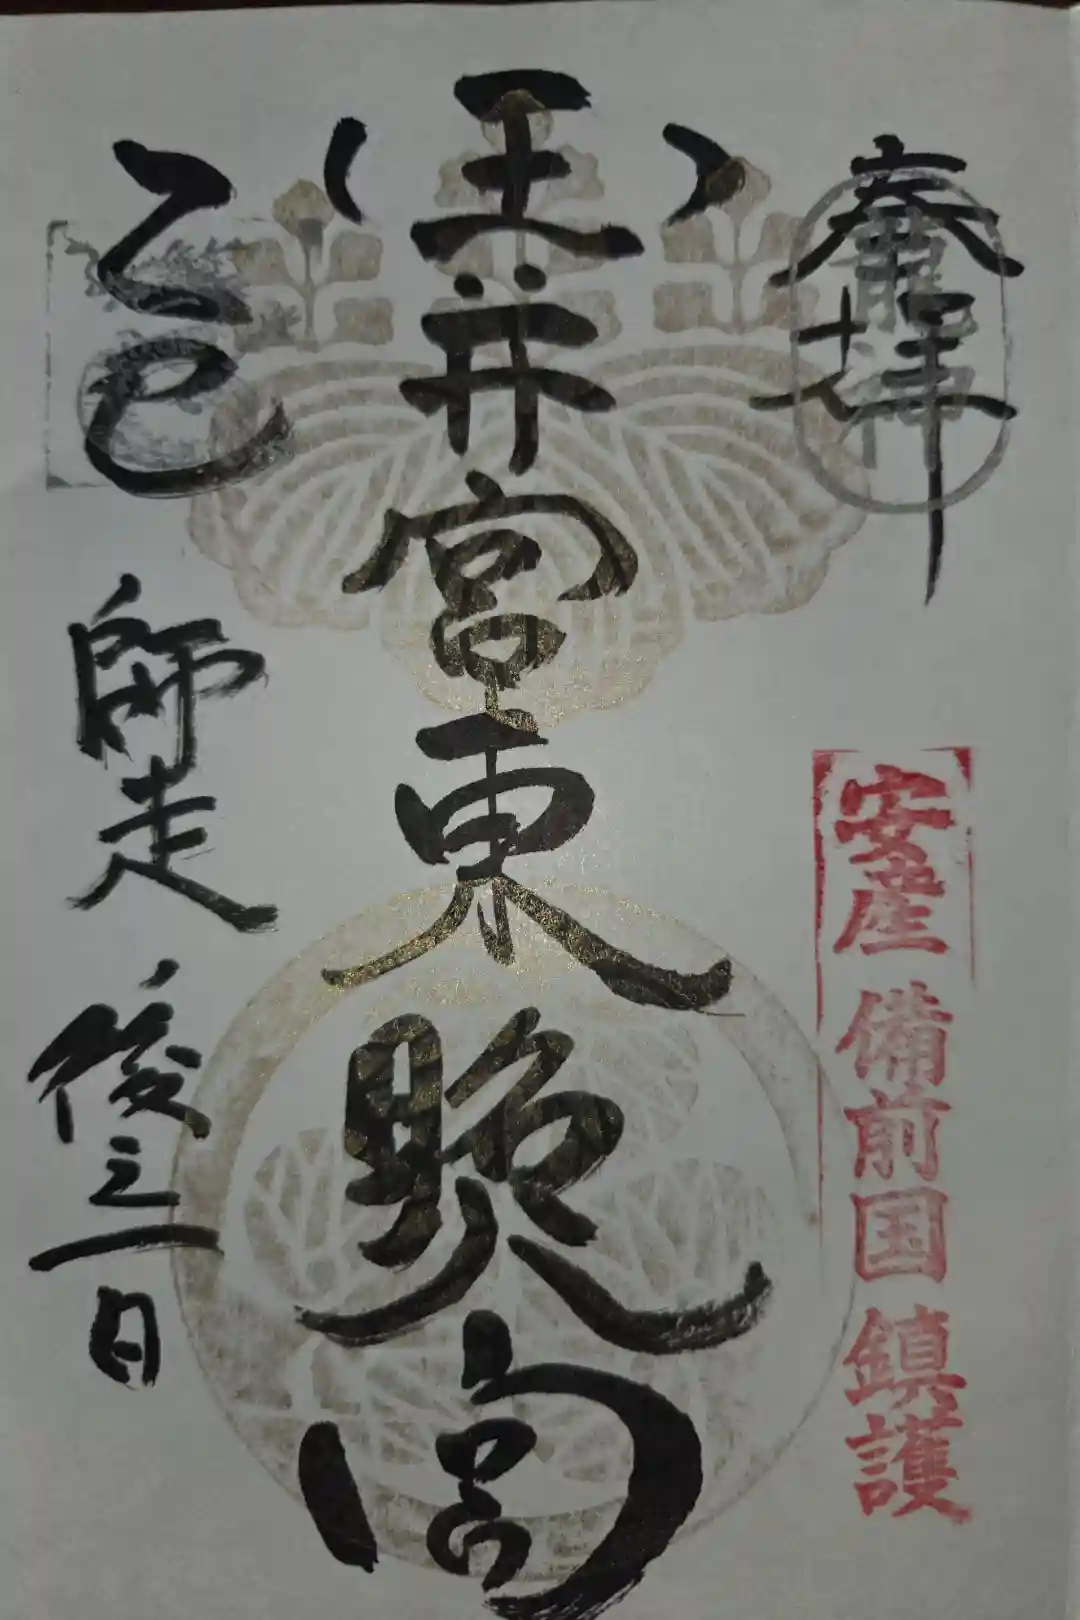 奉拝
安産 備前国 鎮護
玉井宮東照宮
乙巳
師走 後之一日